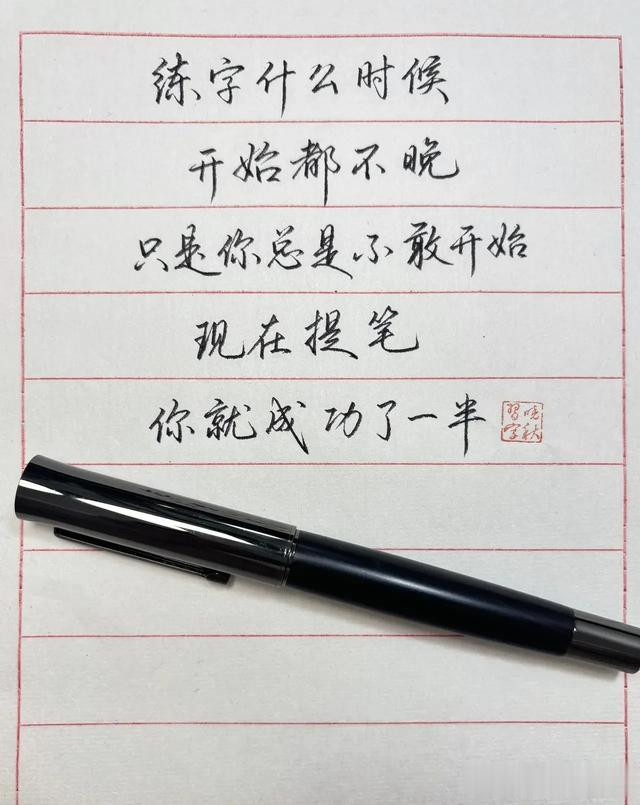 练字什么时候
开始都不晚
只是你总是不敢开始
现在提笔
你就成功了一半
晓秋習字